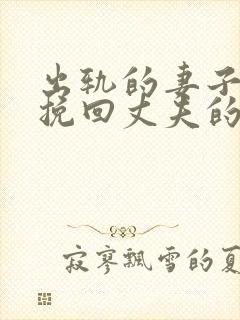 出轨的妻子
挽回丈夫的
寂寥飘雪的夏